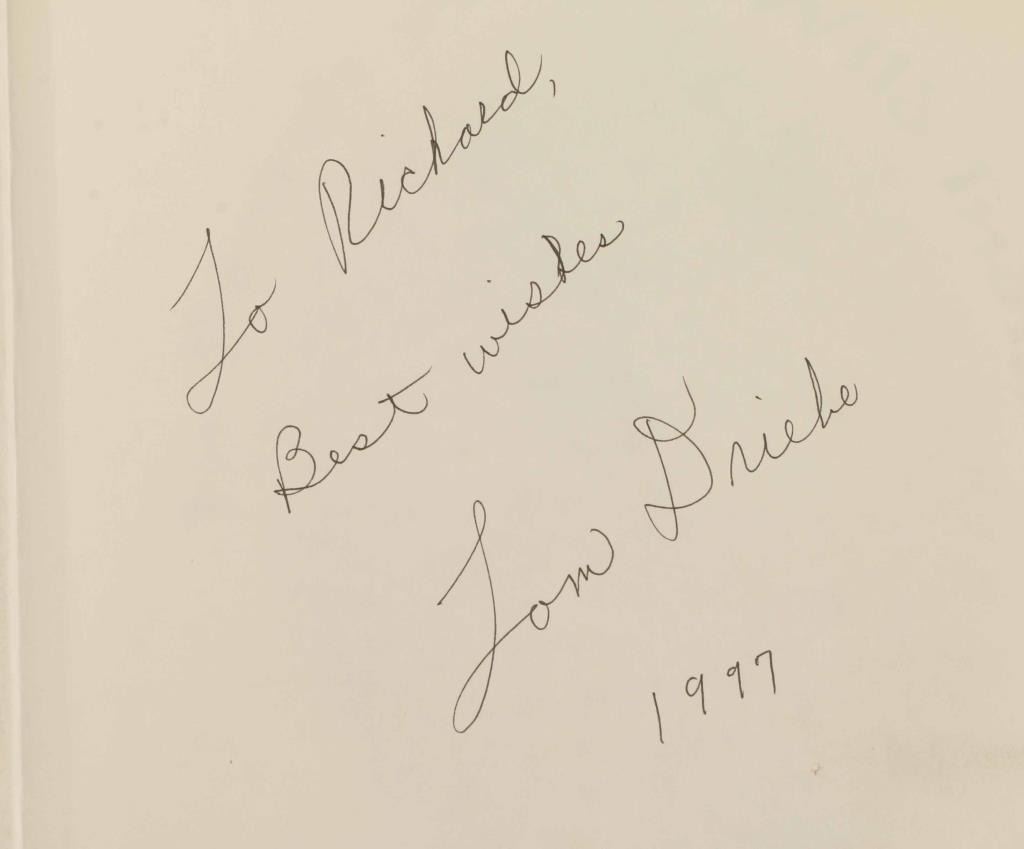 To Richard,
Best wishes
Tom Driebe
1997